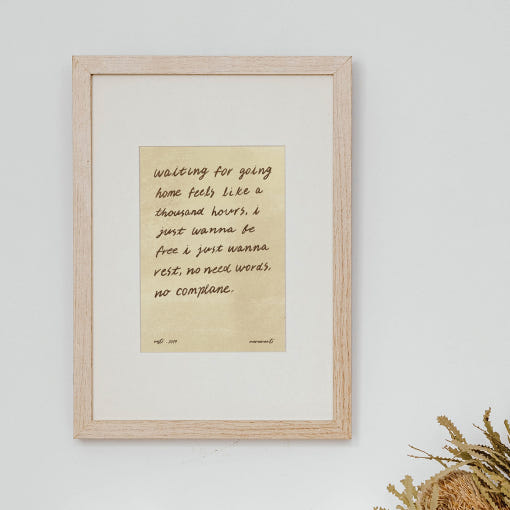 waiting for going
home feels like a
thousand hours, i
just wanna be
free i just wanna
rest, no need words,
no complane.